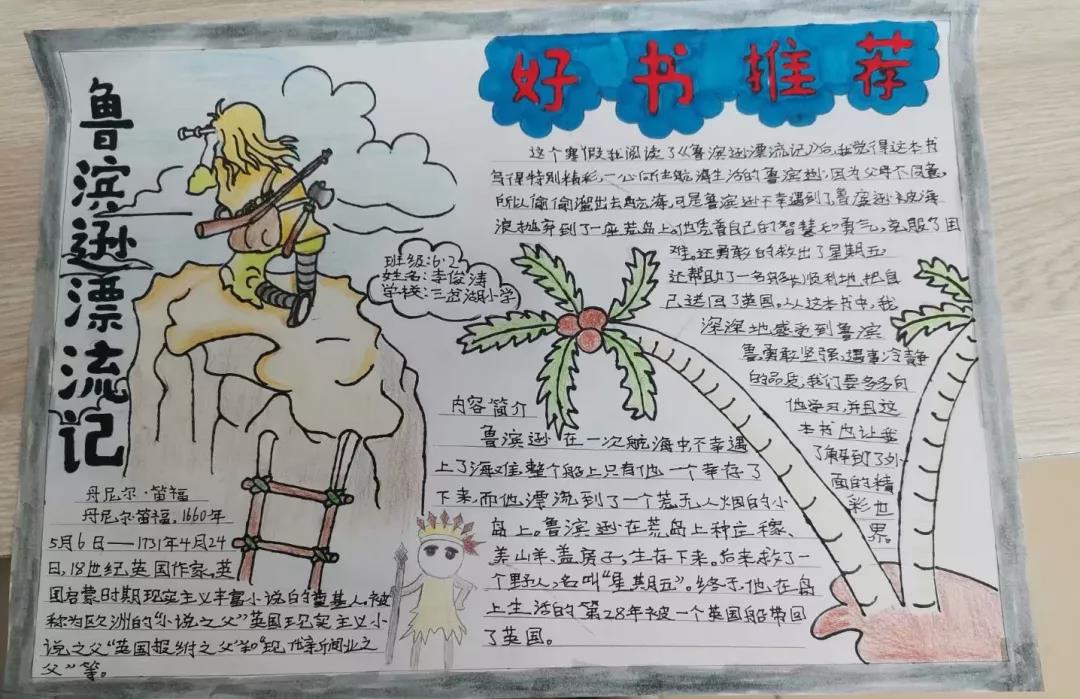 好书推荐
鲁滨逊漂流记
班级:6·2
姓名:李俊涛
学校:三岔湖小学
这个寒假我阅读了《鲁滨逊漂流记》后,我觉得这本书
写得特别精彩,一心向往航海生活的鲁滨逊,因为父母不同意,
所以偷偷溜出去航海,可是鲁滨逊不幸遇到了鲁滨逊被海
浪抛弃到了一座荒岛上,他凭着自己的智慧和勇气,克服了困
难,还勇敢的救出了星期五
还帮助了一名船长顺利地把自
己送回了英国。从这本书中,我
深深地感受到鲁滨
勇敢坚强,遇事冷静
的品质,我们要多多向
他学习,并且这
本书也让我
了解到了外
面的精
彩世
界。
内容简介
鲁滨逊在一次航海中不幸遇
上了海难,整个船上只有他一个幸存了
下来,而他漂流到了一个荒无人烟的小
岛上。鲁滨逊在荒岛上种庄稼、
养山羊、盖房子,生存下来。后来救了一
个野人,名叫“星期五”。终于,他在岛
上生活的第28年被一个英国船带回
了英国。
丹尼尔·笛福
丹尼尔·笛福,1660年
5月6日——1731年4月24
日,18世纪英国作家,英
国启蒙时期现实主义丰富小说的奠基人。被
称为欧洲的“小说之父”英国现实主义小
说之父“英国报纲之父”和“现代新闻业之
父”等。